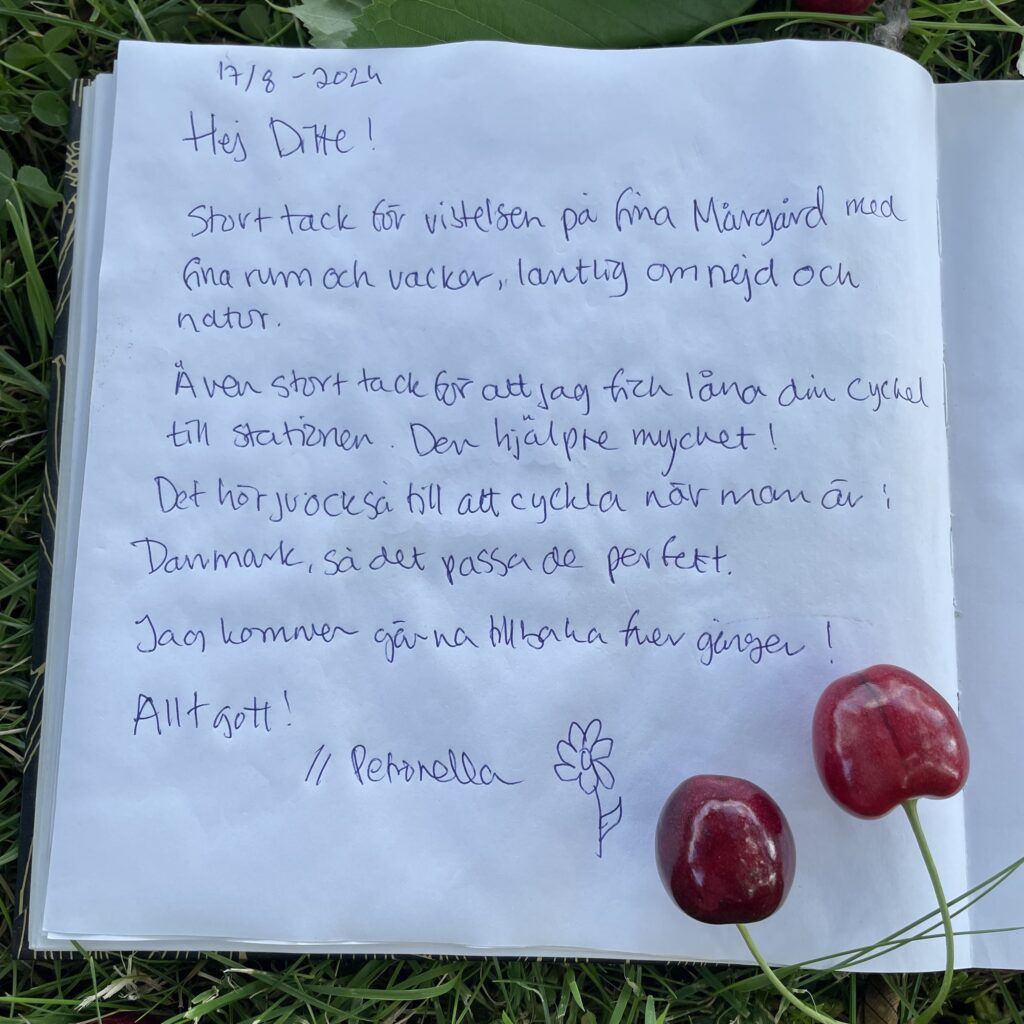 17/8 - 2024
Hej Ditte!
Stort tack för vistelsen på fina Mårgård med
fina rum och vacker, lantlig omnejd och
natur.
Även stort tack för att jag fick låna din cyckel
till stationen. Den hjälpte mycket!
Det hör ju också till att cyckla när man är i
Danmark, så det passade perfekt.
Jag kommer gärna tillbaka fler gånger!
Allt gott!
// Petronella